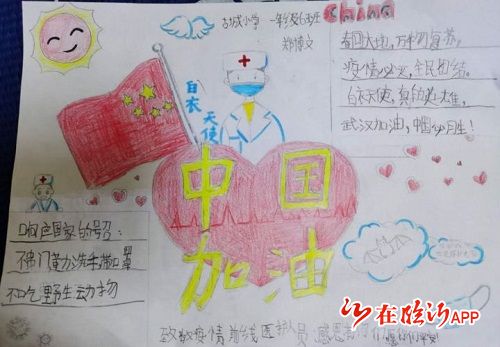 古城小学 一年级6班
郑博文
China
春回大地,万物复苏,
疫情必灭,全民团结。
白衣天使,真的好雄,
武汉加油,中国必胜!
白衣
天使
中国
加油
响应国家的号召:
不出门勤洗手带口罩
不口吃野生动物
致敬疫情前线医护人员
在临沂APP